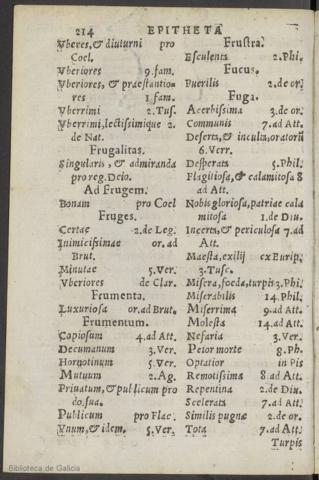 214 EPITHETA
Vberes, & diuturni pro
Coel.
Vberiores 9. fam.
Vberiores, & præstantio-
res 1. fam.
Vberrimi 2. Tus.
Vberrimi, lectissimique 2.
de Nat.
Frugalitas.
Singularis, & admiranda
pro reg. Deio.
Ad Frugem.
Bonam pro Coel
Fruges.
Certae 2. de Leg.
Inimicissimae or. ad
Brut.
Minutae 5. Ver.
Vberiores de Clar.
Frumenta.
Luxuriosa or. ad Brut.
Frumentum.
Copiosum 4. ad Att.
Decumanum 3. Ver.
Hornotinum 5. Ver.
Mutuum 2. Ag.
Priuatum, & publicum pro
do. sua.
Publicum pro Flac.
Vnum, & idem. 5. Ver.
Frustra.
Esculenta 2. Phi.
Fucus.
Puerilis 2. de or.
Fuga.
Acerbissima 3. de or.
Communis 7. ad Att.
Deserta, & inculta, oratorũ
6. Verr.
Desperata 5. Phil.
Flagitiosa, & calamitosa 8
ad Att.
Nobis gloriosa, patriae cala
mitosa 1. de Diu.
Incerta, & periculosa 7. ad
Att.
Maesta, exilij ex Eurip.
3. Tusc.
Misera, foeda, turpis 3. Phil
Miserabilis 14. Phil.
Miserrima 9. ad Att.
Molesta 14. ad Att.
Nefaria 3. Ver.
Peior morte 8. Ph.
Optatior in Pis
Remotissima 8 ad Att.
Repentina 2. de Diu.
Scelerata 7. ad Att.
Similis pugnae 2. de or.
Tota 7. ad Att.
Turpis
Biblioteca de Galicia